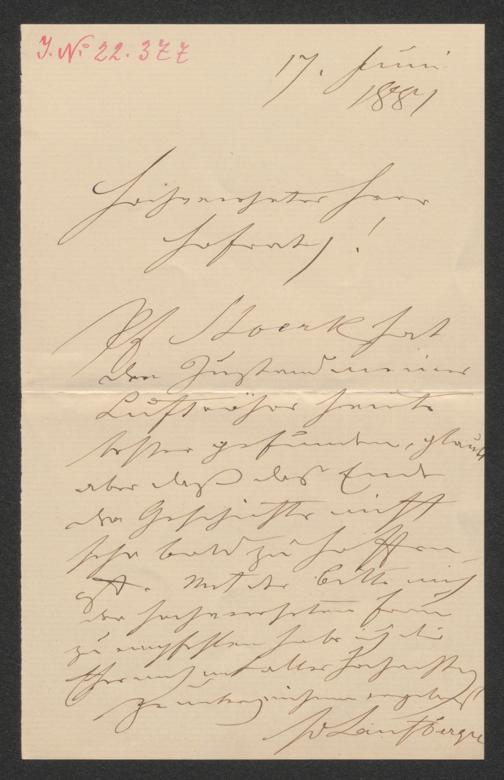 J. No 22.377
17. Juni
1881
Hochverehrter Herr
Hofrath!
Pf Stoerk hat
den Zustand meiner
Luftröhre heute
besser gefunden, glaubt
aber daß das Ende
der Geschichte nicht
sehr bald zu hoffen
ist. Mit der Bitte mich
der hochverehrten Frau
zu empfehlen habe ich die
Ehre mich mit aller Hochachtung
zu unterzeichnen ergebenst
Laufberger